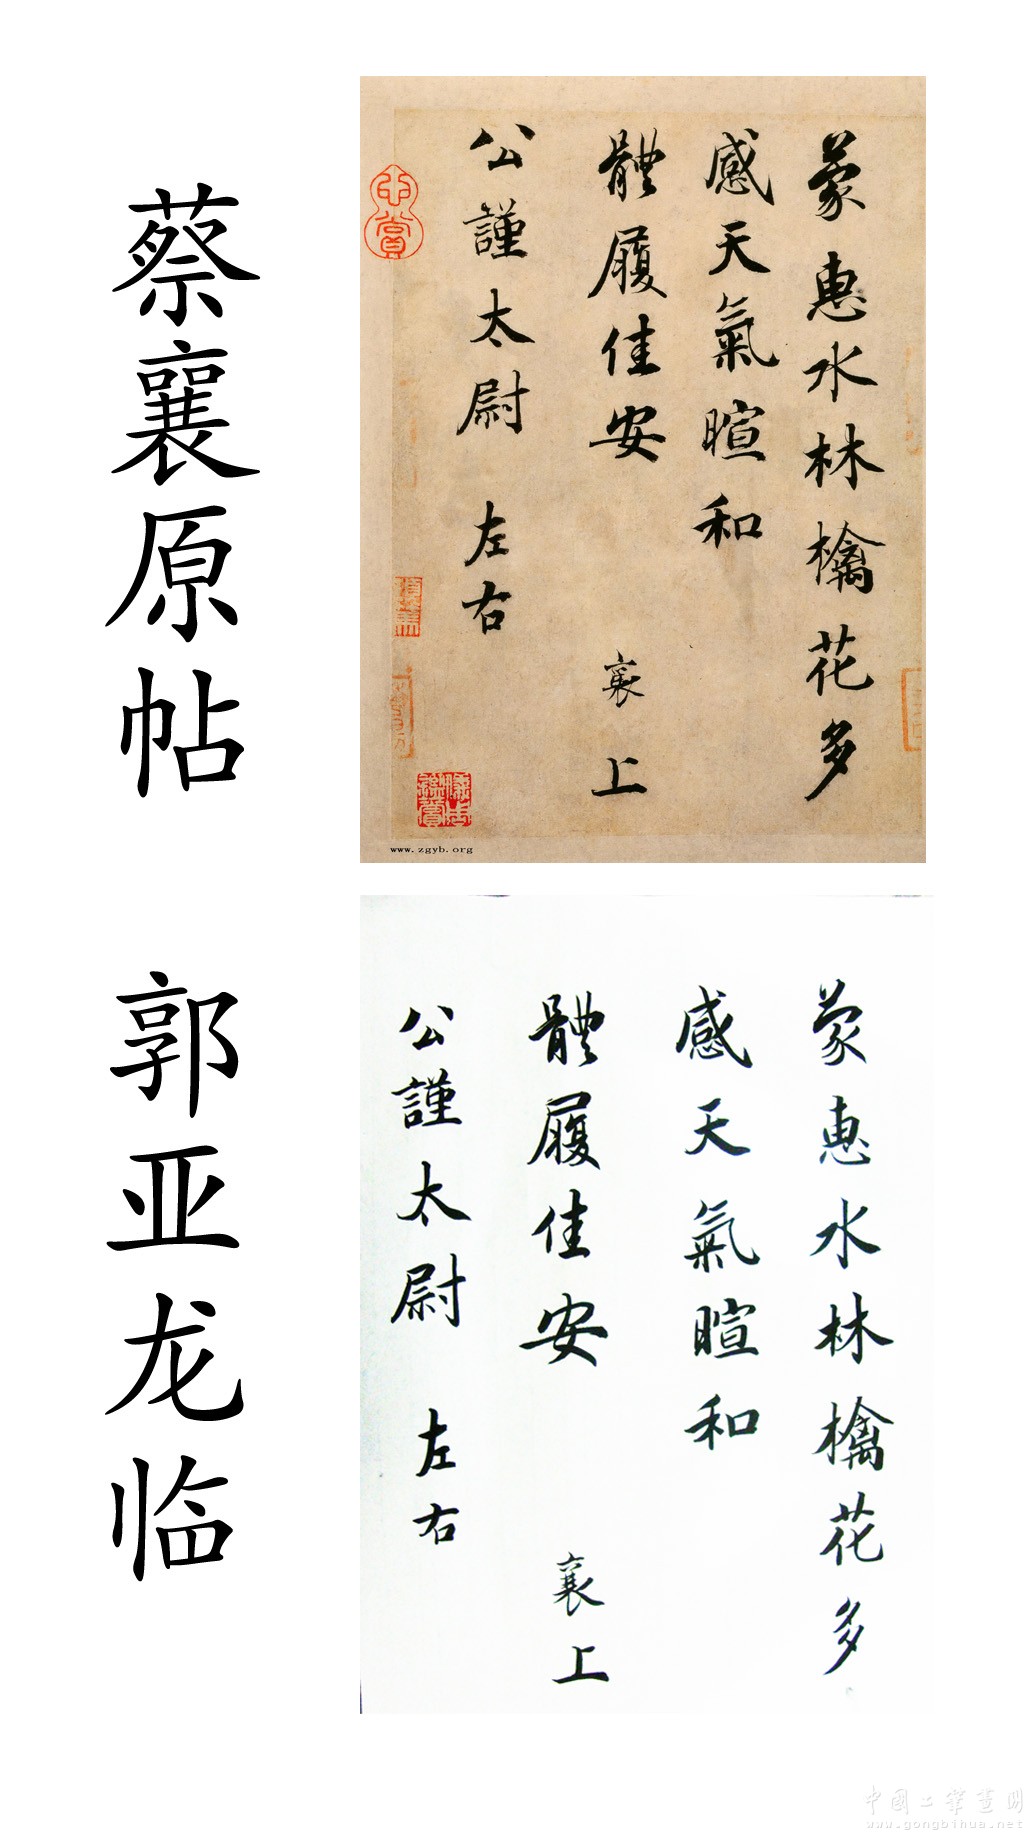 蔡襄原帖
蒙惠水林檎花多
感天氣暄和
體履佳安 襄上
公謹太尉 左右
www.zgyb.org
郭亚龙临
蒙惠水林檎花多
感天氣暄和
體履佳安 襄上
公謹太尉 左右
中國工筆畫網
www.gongbihua.net